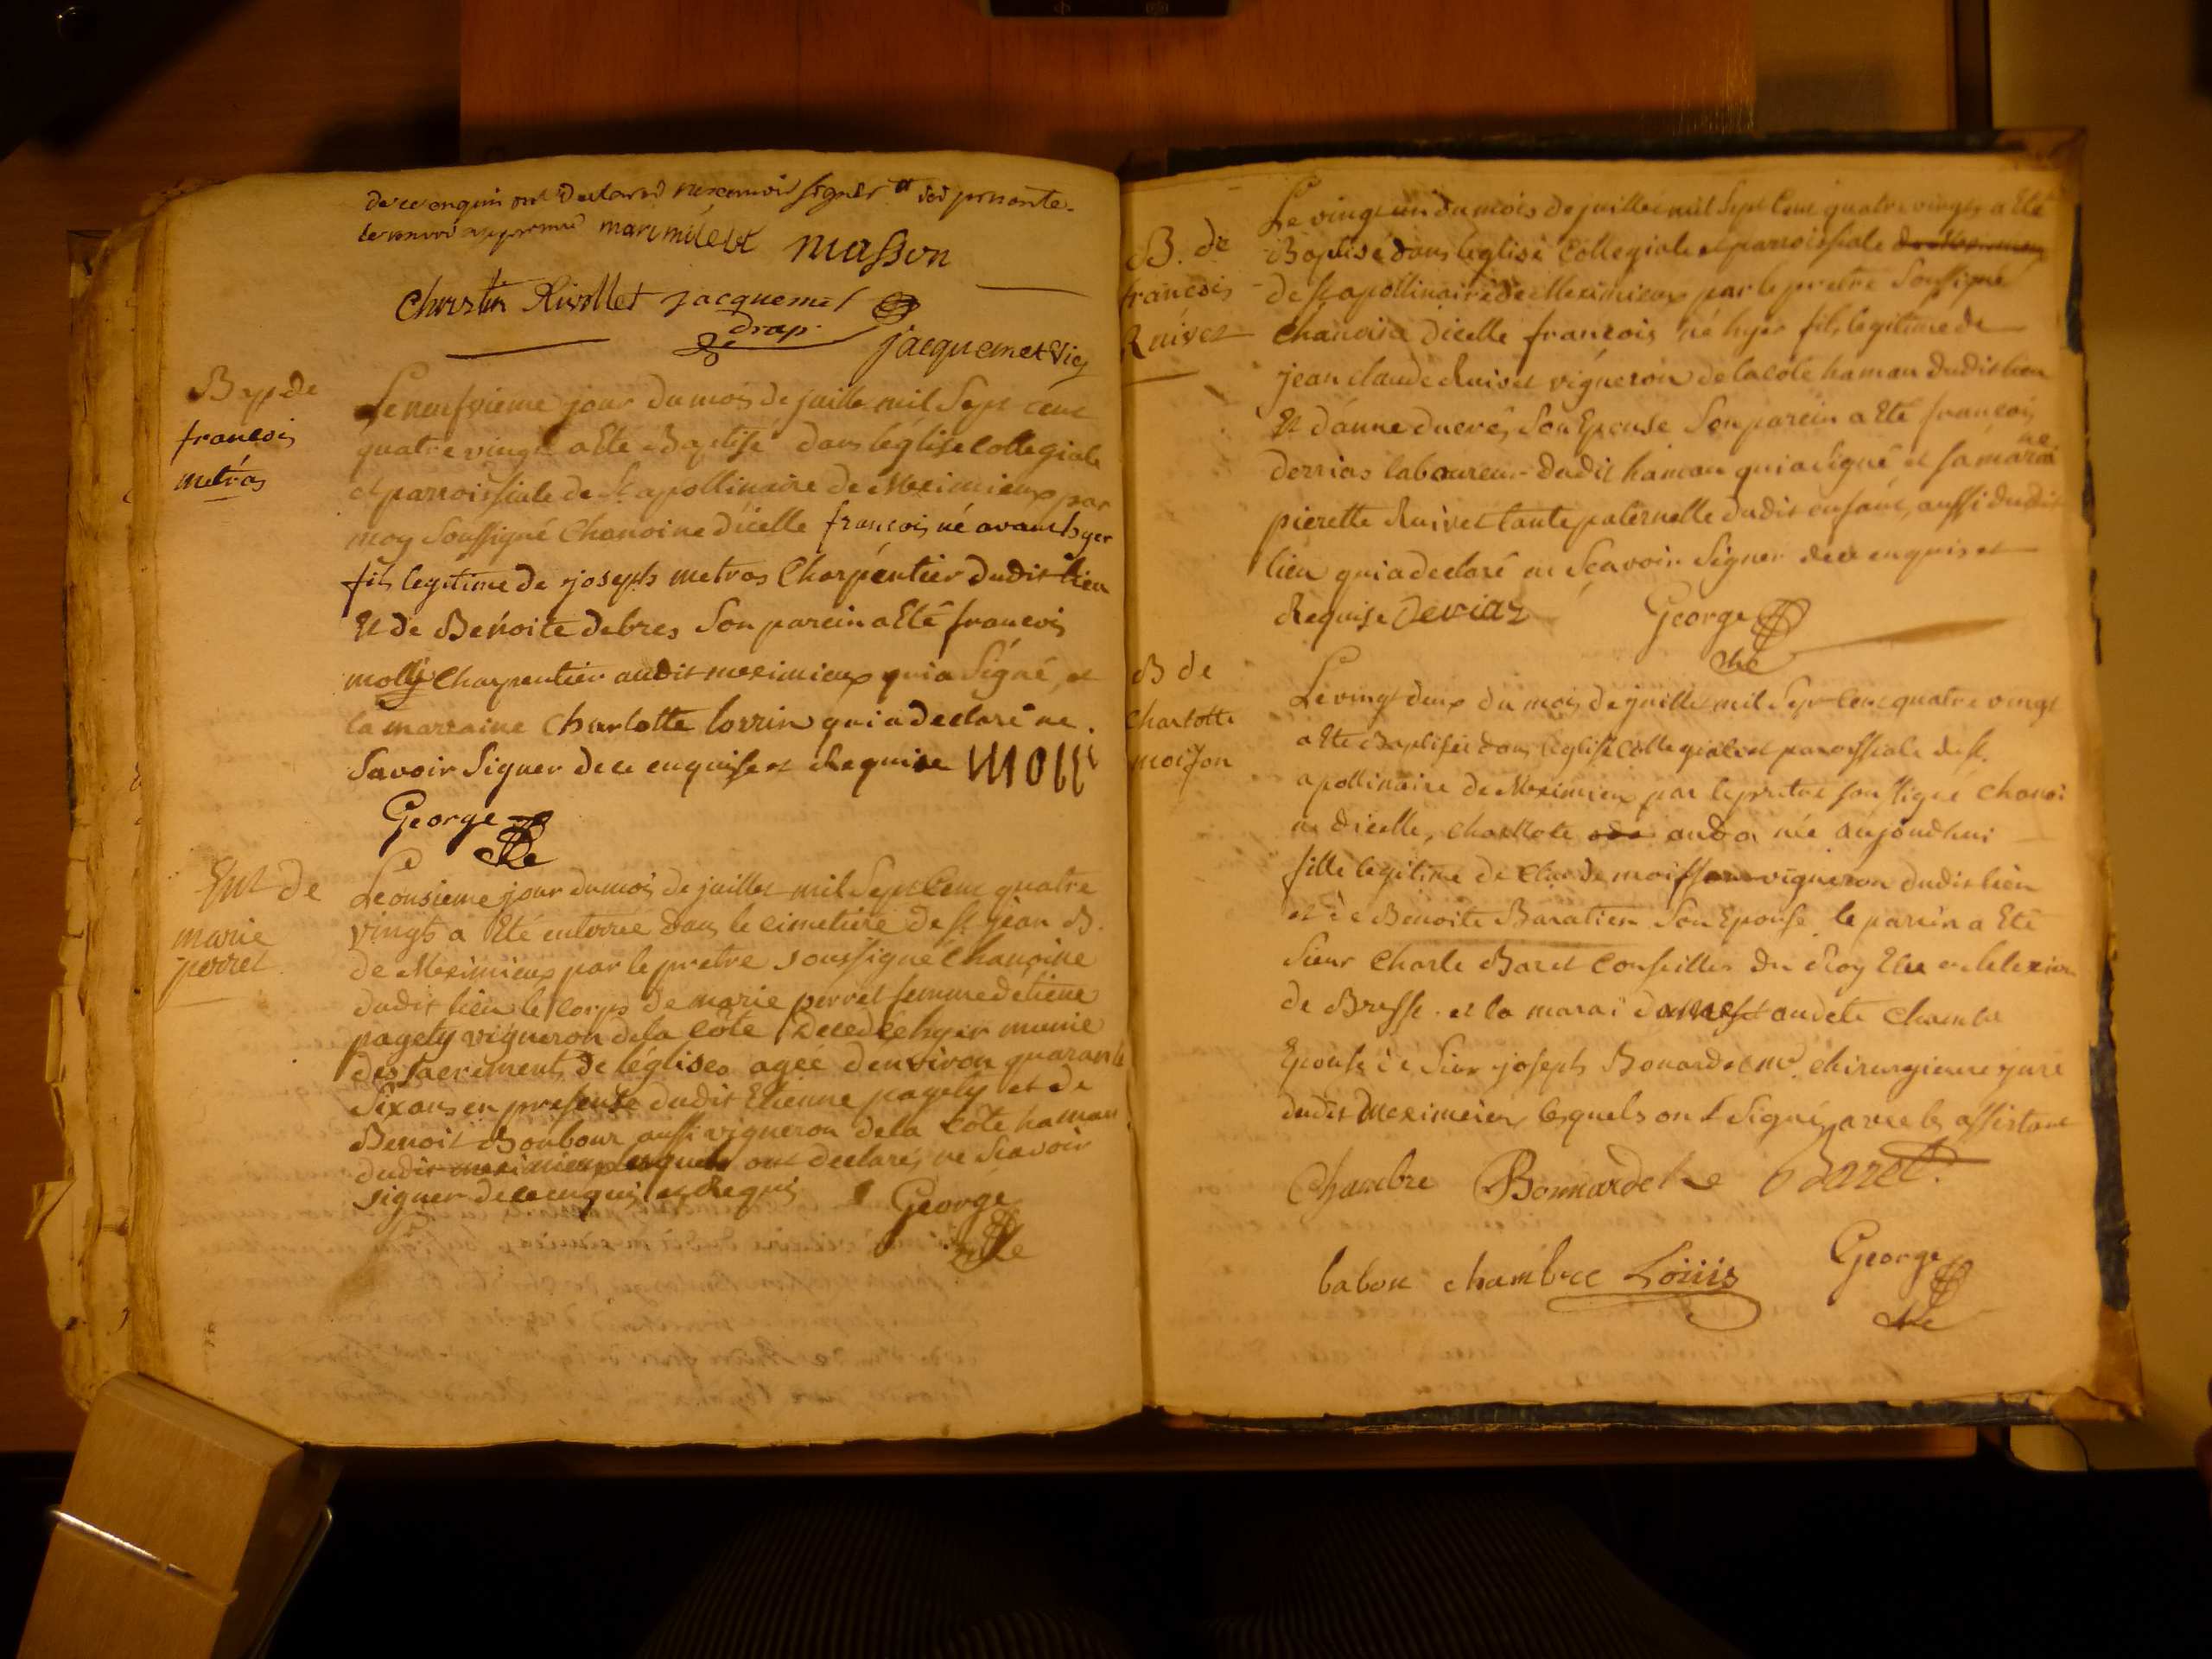 de ce enquis ont declaré ne scavoir signer
marie milliet masson
Christin Rivollet jacquemet
drap
jacquemet Vic
Bap de
francois
metras
Le neufvieme jour du mois de juillet mil Sept cent
quatre vingt a Eté Baptisé dans léglise Collegiale
et parroissiale de St apollinaire de Meximieux par
moy Soussigné Chanoine dicelle francois né avant hyer
fils legitime de joseph metras Charpentier dudit lieu
Et de Benoite debres Son parein a Eté francois
molly Charpentier audit meximieux qui a Signé, et
la marraine Charlotte lorrin qui a declaré ne
Savoir Signer de ce enquise et Requise
George
Ent de
marie
perret
Le onsieme jour du mois de juillet mil Sept Cent quatre
vingts a Eté enterrée dans le cimetiere de St jean B.
de Meximieux par le pretre soussigné Chanoine
dudit lieu le Corps de marie perret femme detiene
pagety vigneron de la Côte decedée hyer munie
des sacrements de léglise agée denviron quarante
Six ans en presence dudit Etienne pagety et de
Benoit Bonbour aussi vigneron dela Côte hamau
dudit meximieux lesquels ont declarés ne Scavoir
signer de ce enquis et Requis George
B. de
francois
Ruivet
Le vingt un du mois de juillet mil Sept Cent quatre vingts a Eté
Baptisé dans léglise Collegiale et parroissiale
de St apollinaire de Meximieux par le pretre Soussigné
Chanoine dicelle francois né hyer fils legitime de
jean claude Ruivet vigneron de la côte hamau dudit lieu
Et danne ducré Son Epouse Son parein a Eté francois
derrias laboureur dudit hamau qui a Signé et sa maraine
pierette Ruivet tante paternelle dudit enfant, aussi dudit
lieu qui a declaré ne Scavoir Signer de ce enquis et
Requise Deviaz George
B de
charlotte
moisson
Le vingt deux du mois de juillet mil Sept Cent quatre vingt
a Ete Baptisée dans léglise Collegiale et paroissiale de St.
apollinaire de Meximieu par le pretre soussigné Chanoi
ne dicelle, Charllote anda née aujoudhui
fille legitime de Claude moisson vigneron dudit lieu
et de Benoite Baratier Son Epouse le parein a Eté
Sieur Charle Baret Conseiller du Roy Elu
de Bresse et la marai
Epouse de Sieur joseph Bonardet me chirurgien jure
dudit Meximieu lesquels ont Signé avec les assistant
Chambre Bonnardet Baret
babou chambre Loüis George